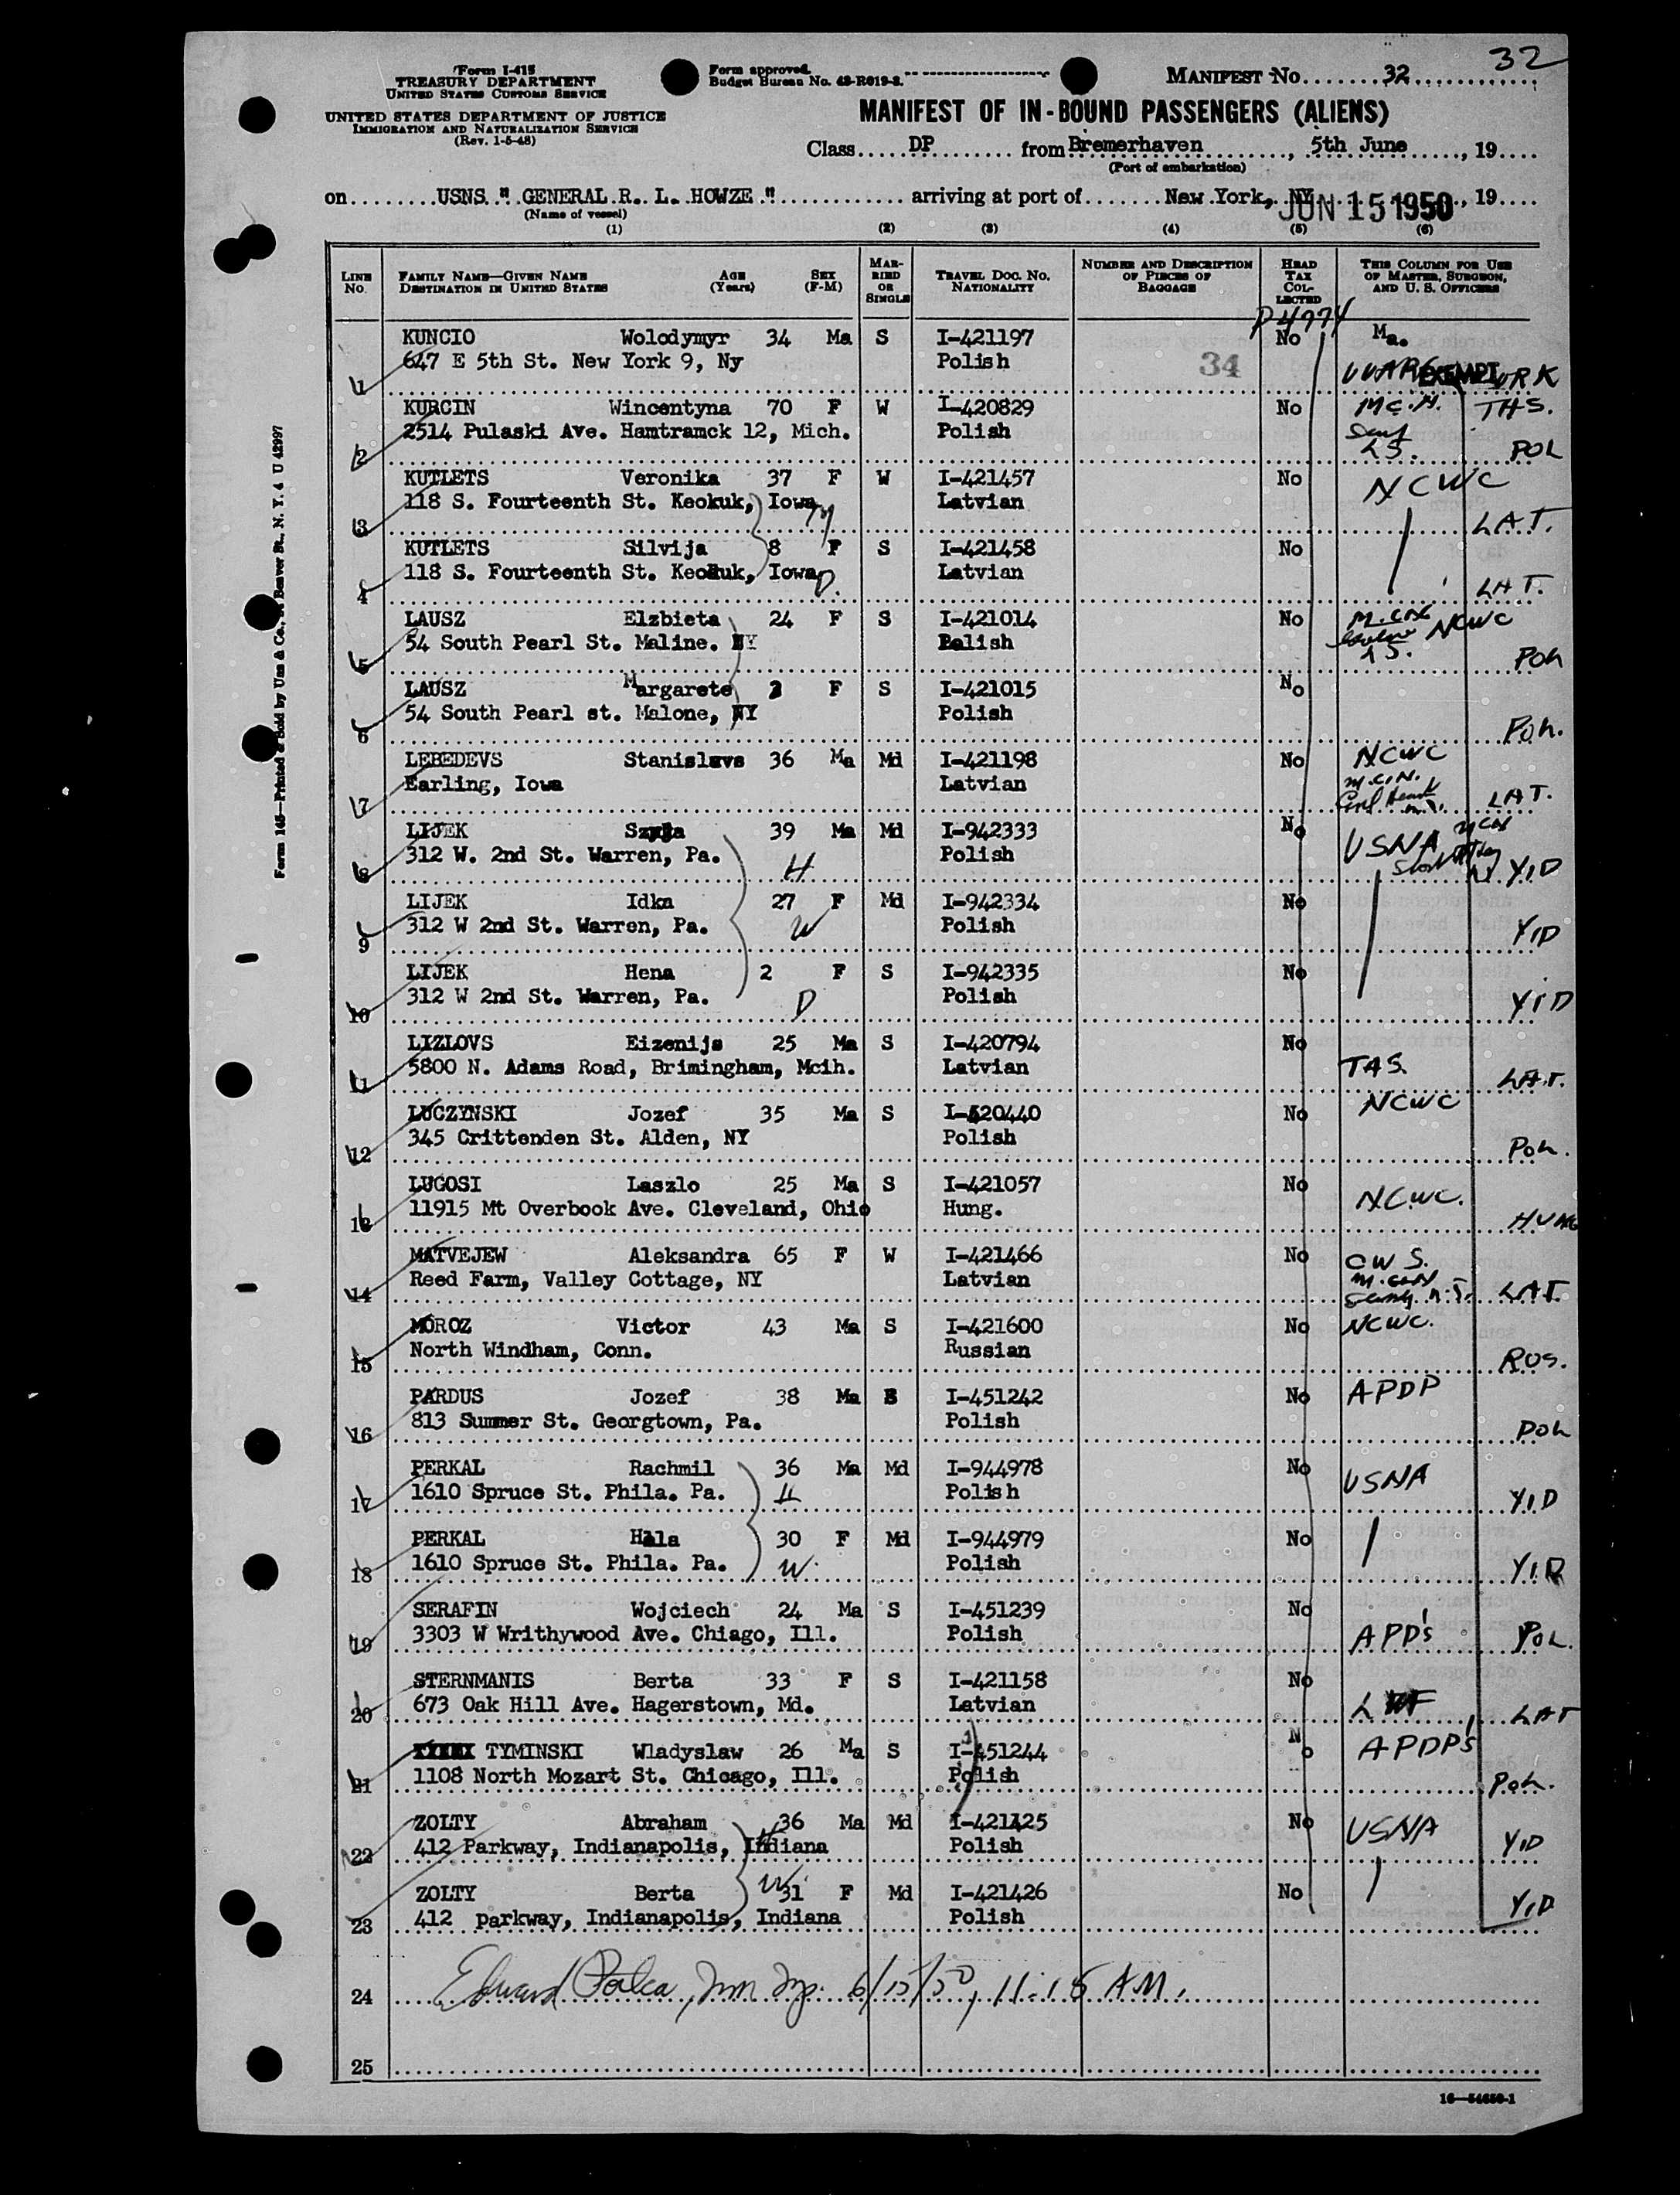 32
Form I-415
TREASURY DEPARTMENT
UNITED STATES CUSTOMS SERVICE
UNITED STATES DEPARTMENT OF JUSTICE
IMMIGRATION AND NATURALIZATION SERVICE
(Rev. 1-5-48)
Form approved.
Budget Bureau No. 43-R019-2.
MANIFEST No. 32
MANIFEST OF IN-BOUND PASSENGERS (ALIENS)
Class DP from Bremerhaven, 5th June, 19
(Port of embarkation)
on USNS " GENERAL R. L. HOWZE " arriving at port of New York, NY JUN 15 1950, 19
(Name of vessel)
(1) (2) (3) (4) (5) (6)
LINE No. FAMILY NAME—GIVEN NAME DESTINATION IN UNITED STATES AGE (Years) SEX (F-M) MARRIED OR SINGLE TRAVEL DOC. NO. NATIONALITY NUMBER AND DESCRIPTION OF PIECES OF BAGGAGE HEAD TAX COLLECTED THIS COLUMN FOR USE OF MASTER, SURGEON, AND U. S. OFFICERS
P4774
KUNCIO Wolodymyr 34 Ma S I-421197 No Ma.
1 647 E 5th St. New York 9, Ny Polish 34 EXEMPT URK
KURCIN Wincentyna 70 F W I-420829 No M.C.N. THS.
2 2514 Pulaski Ave. Hamtramck 12, Mich. Polish POL
KUTLETS Veronika 37 F W I-421457 No NCWC
3 118 S. Fourteenth St. Keokuk, Iowa M Latvian LAT.
KUTLETS Silvija 8 F S I-421458 No
4 118 S. Fourteenth St. Keokuk, Iowa D. Latvian LAT.
LAUSZ Elzbieta 24 F S I-421014 No NCWC
5 54 South Pearl St. Maline. NY Polish POL
LAUSZ Margarete 2 F S I-421015 No
6 54 South Pearl st. Malone, NY Polish POL.
LEBEDEVS Stanislavs 36 Ma Md I-421198 No NCWC
7 Earling, Iowa Latvian M.C.N. LAT.
LIJEK Szyja 39 Ma Md I-942333 No USNA
8 312 W. 2nd St. Warren, Pa. H Polish YID
LIJEK Idka 27 F Md I-942334 No
9 312 W 2nd St. Warren, Pa. W Polish YID
LIJEK Hena 2 F S I-942335 No
10 312 W 2nd St. Warren, Pa. D Polish YID
LIZLOVS Eizenijs 25 Ma S I-420794 No
11 5800 N. Adams Road, Brimingham, Mcih. Latvian TAS. LAT.
LUCZYNSKI Jozef 35 Ma S I-420440 No NCWC
12 345 Crittenden St. Alden, NY Polish POL.
LUGOSI Laszlo 25 Ma S I-421057 No NCWC.
13 11915 Mt Overbook Ave. Cleveland, Ohio Hung. HUNG
MATVEJEW Aleksandra 65 F W I-421466 No CWS.
14 Reed Farm, Valley Cottage, NY Latvian LAT.
MOROZ Victor 43 Ma S I-421600 No NCWC.
15 North Windham, Conn. Russian RUS.
PARDUS Jozef 38 Ma S I-451242 No APDP
16 813 Summer St. Georgtown, Pa. Polish POL
PERKAL Rachmil 36 Ma Md I-944978 No USNA
17 1610 Spruce St. Phila. Pa. H Polish YID
PERKAL Hala 30 F Md I-944979 No
18 1610 Spruce St. Phila. Pa. W. Polish YID
SERAFIN Wojciech 24 Ma S I-451239 No
19 3303 W Writhywood Ave. Chiago, Ill. Polish APD's POL.
STERNMANIS Berta 33 F S I-421158 No
20 673 Oak Hill Ave. Hagerstown, Md. Latvian LWF LAT
TYMINSKI Wladyslaw 26 Ma S I-451244 No APDP's
21 1108 North Mozart St. Chicago, Ill. Polish POL.
ZOLTY Abraham 36 Ma Md I-421425 No USNA
22 412 Parkway, Indianapolis, Indiana H Polish YID
ZOLTY Berta W. 31 F Md I-421426 No
23 412 parkway, Indianapolis, Indiana Polish YID
24 Edward 6/15/50, 11:15 AM.
25
16—54650-1
Form 145—Printed & Sold by Unz & Co., Beaver St., N. Y. 4 U 42997